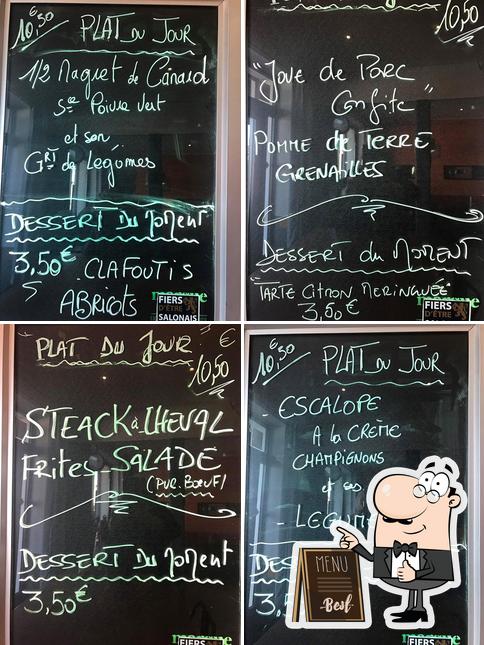 10,50€ PLAT DU JOUR
1/2 Magret de Canard
Sce Poivre Vert
et son
GRT de Légumes
DESSERT DU MOMENT
3,50€ CLAFOUTIS
ABRICOTS
FIERS
D'ÊTRE
SALONAIS
10,50
"Joue de Porc
Confite"
POMME de TERRE
GRENAILLES
DESSERT du MOMENT
TARTE CITRON MERINGUÉE
3,50€
FIERS
D'ÊTRE
SALONAIS
PLAT DU JOUR
10,50 €
STEACK à CHEVAL
Frites SALADE
(PUR BOEUF)
DESSERT DU MOMENT
3,50€
FIERS
10,50€ PLAT DU JOUR
- ESCALOPE
A la CRÈME
CHAMPIGNONS
et ses
- LEGUM
DES
3,5
MENU
Best
FIERS